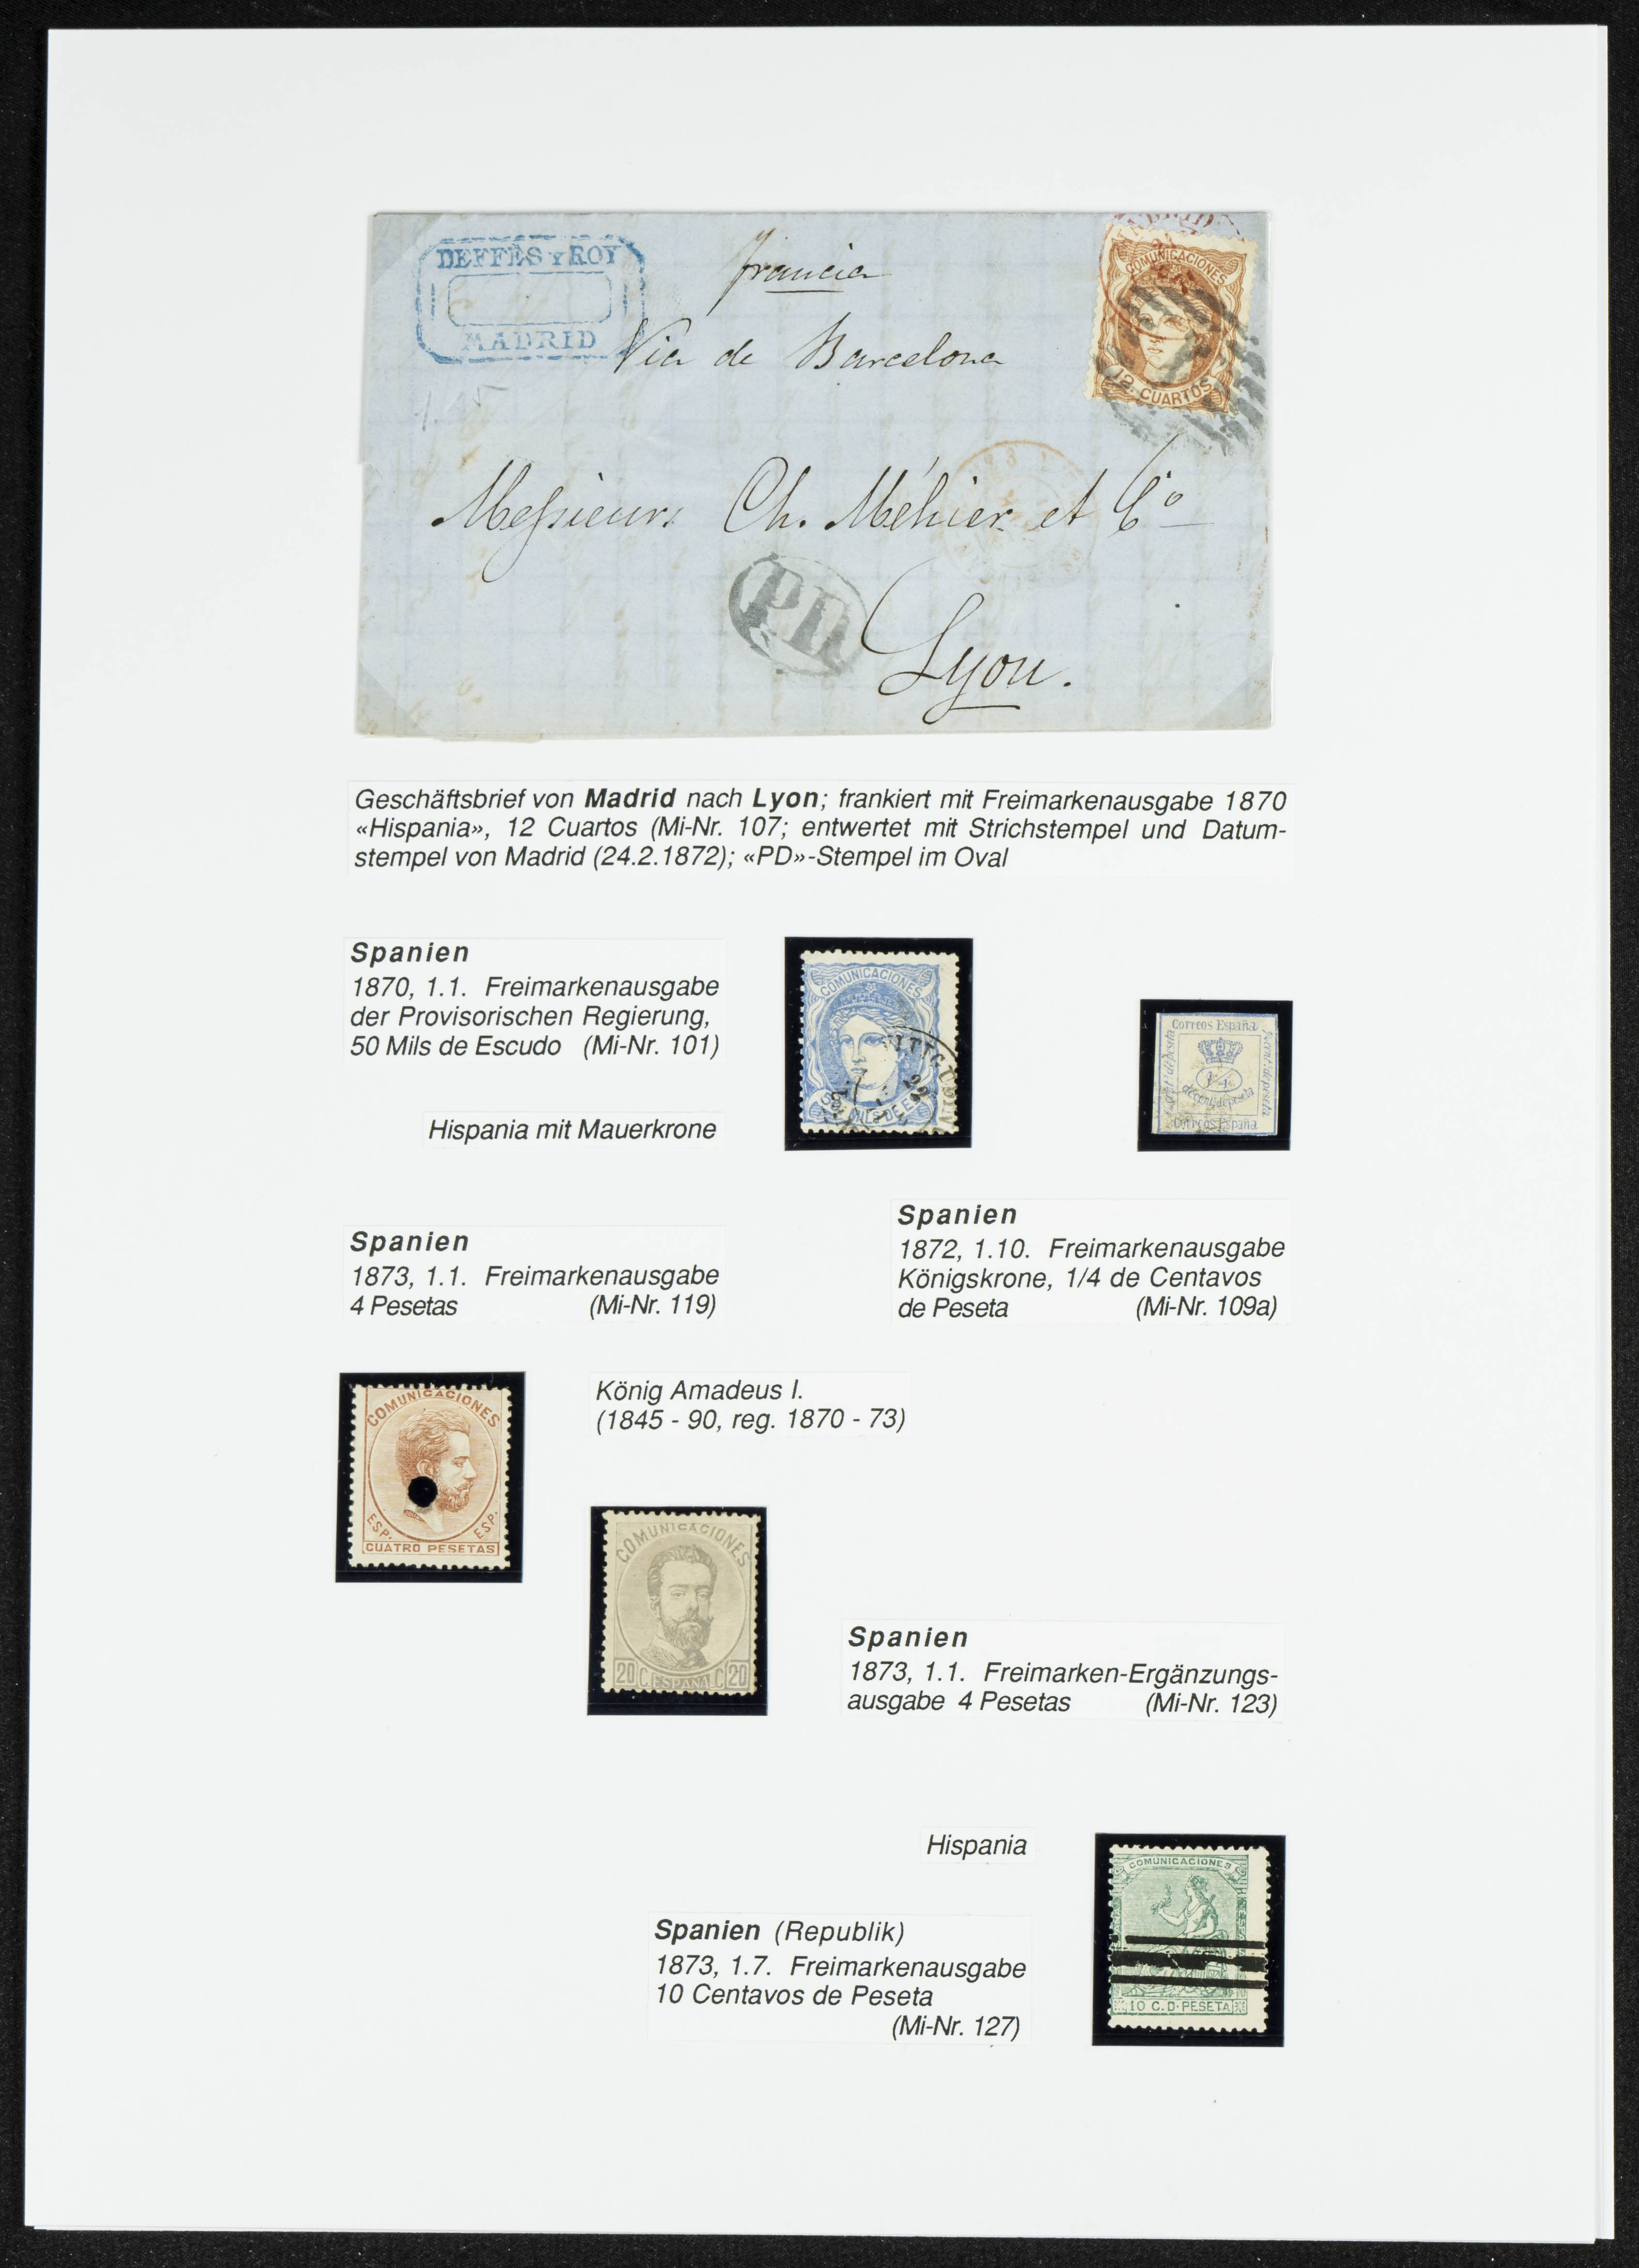 DEFFÈS Y ROY
MADRID
francia
Via de Barcelona
COMUNICACIONES
12. CUARTOS
Messieurs Ch. Méhier et Cº
PD
Lyon.
Geschäftsbrief von Madrid nach Lyon; frankiert mit Freimarkenausgabe 1870
«Hispania», 12 Cuartos (Mi-Nr. 107; entwertet mit Strichstempel und Datum-
stempel von Madrid (24.2.1872); «PD»-Stempel im Oval
Spanien
1870, 1.1. Freimarkenausgabe
der Provisorischen Regierung,
50 Mils de Escudo (Mi-Nr. 101)
Hispania mit Mauerkrone
COMUNICACIONES
Correos España
1/4
de cent. de peseta
Correos España
Spanien
1873, 1.1. Freimarkenausgabe
4 Pesetas (Mi-Nr. 119)
Spanien
1872, 1.10. Freimarkenausgabe
Königskrone, 1/4 de Centavos
de Peseta (Mi-Nr. 109a)
COMUNICACIONES
ESP. ESP.
CUATRO PESETAS
König Amadeus I.
(1845 - 90, reg. 1870 - 73)
COMUNICACIONES
20 C. ESPAÑA C. 20
Spanien
1873, 1.1. Freimarken-Ergänzungs-
ausgabe 4 Pesetas (Mi-Nr. 123)
Hispania
COMUNICACIONES
10 C. D. PESETA
Spanien (Republik)
1873, 1.7. Freimarkenausgabe
10 Centavos de Peseta
(Mi-Nr. 127)